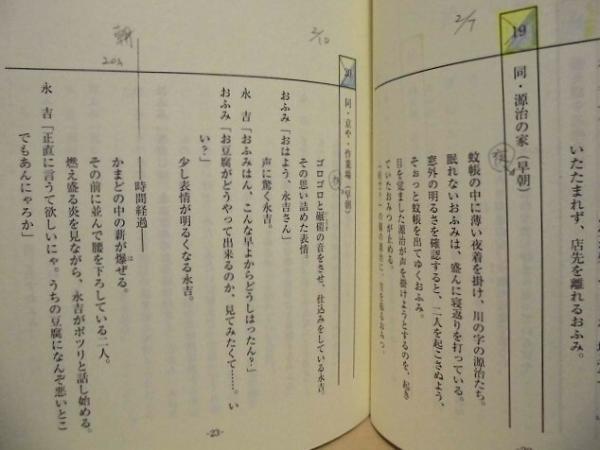 いたたまれず、店先を離れるおふみ。
2/7
19 同・源治の家（早朝）
蚊帳の中に薄い夜着を掛け、川の字の源治たち。
眠れないおふみは、盛んに寝返りを打っている。
意外の明るさを確認すると、二人を起こさぬよう、
そおっと蚊帳を出てゆくおふみ。
目を覚ました源治が声を掛けようとするのを、起き
ていたおみつが止める。
2/10
20 同・京や・作業場（早朝）
ゴロゴロと碾磑の音をさせ、仕込みをしている永吉。
その思い詰めた表情。
おふみ「おはよう、永吉さん」
声に驚く永吉。
永　吉「おふみはん、こんな早よからどうしはったん？」
おふみ「お豆腐がどうやって出来るのか、見てみたくて……。い
い？」
少し表情が明るくなる永吉。
――時間経過――
朝
かまどの中の薪が爆ぜる。
は
その前に並んで腰を下ろしている二人。
燃え盛る炎を見ながら、永吉がポツリと話し始める。
永　吉「正直に言うて欲しいにゃ。うちの豆腐になんぞ悪いとこ
でもあんにゃろか」
-23-